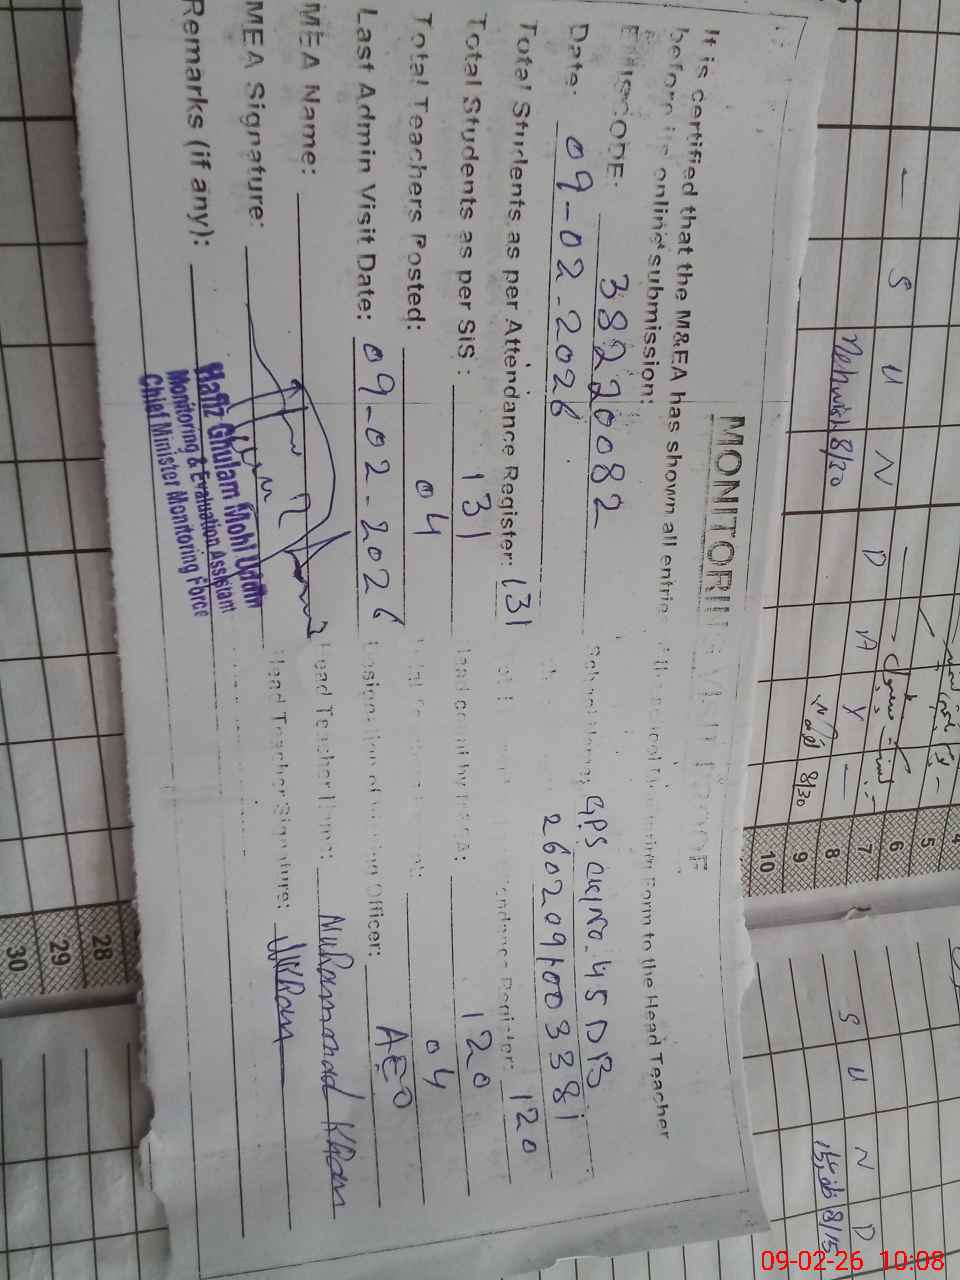 MONITORING VISIT PROOF
It is certified that the M&EA has shown all entries of the school Monitoring Form to the Head Teacher
before its online submission:
EMISCODE: 38220082 School Name: GPS Ck No. 45 DB
Date: 09-02-2026 2602091003381
Total Students as per Attendance Register: 131 Attendance Register: 120
Total Students as per SiS: 131 Head count by MEA: 120
Total Teachers Posted: 04 04
Last Admin Visit Date: 09-02-2026 Designation of Visiting Officer: AEO
MEA Name: Head Teacher Name: Muhammad Khan
MEA Signature: Head Teacher Signature:
Remarks (if any):
Hafiz Ghulam Mohi Uddin
Monitoring & Evaluation Assistant
Chief Minister Monitoring Force
S U N D A Y
8/30
8/30
4
5
6
7
8
9
10
28
29
30
S U N D
8/15
09-02-26 10:08